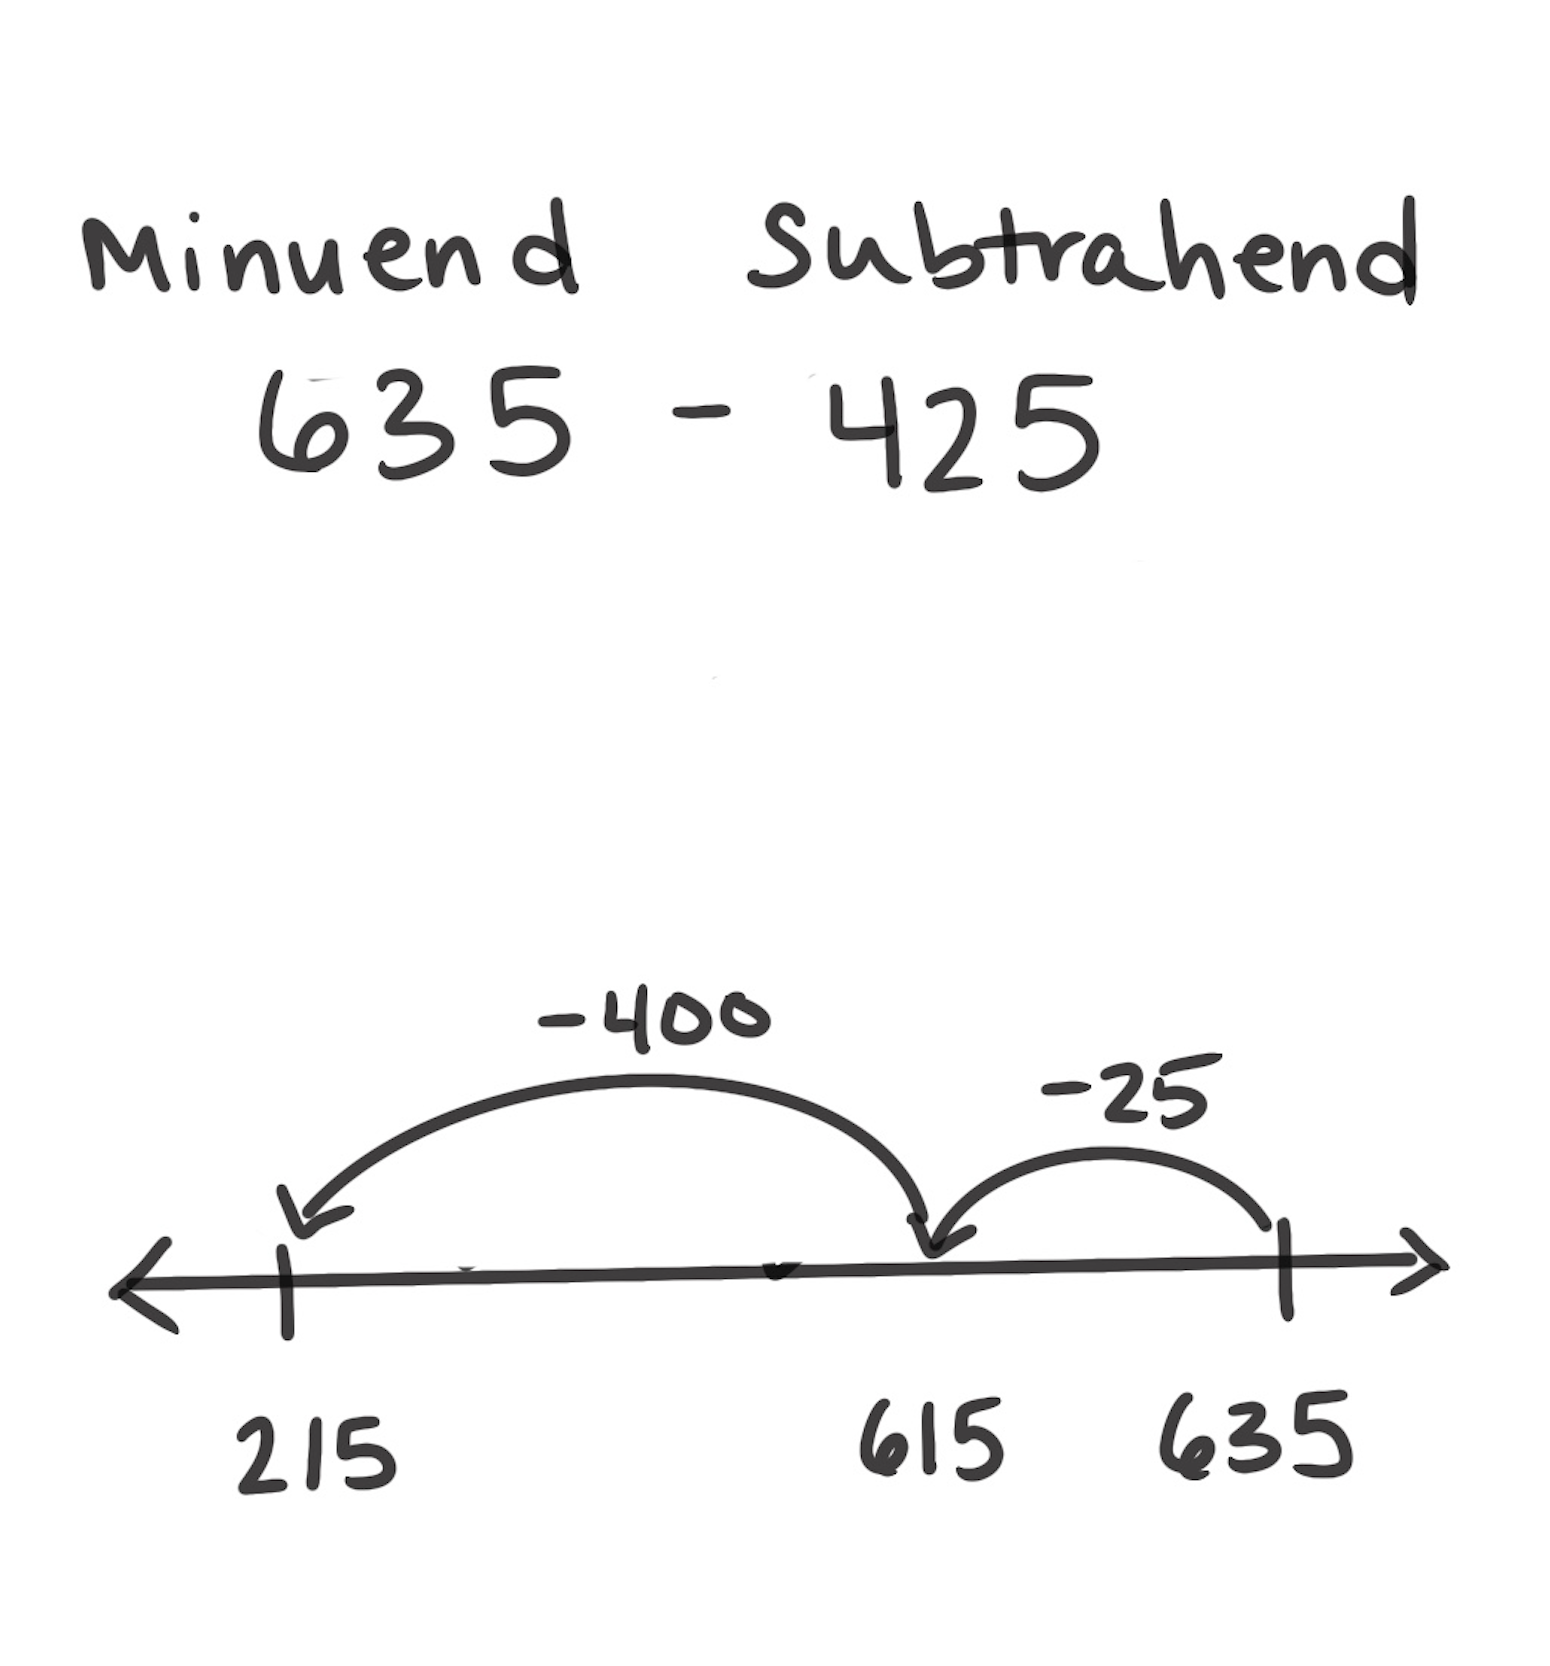 Minuend Subtrahend
635 - 425
-400
-25
215 615 635